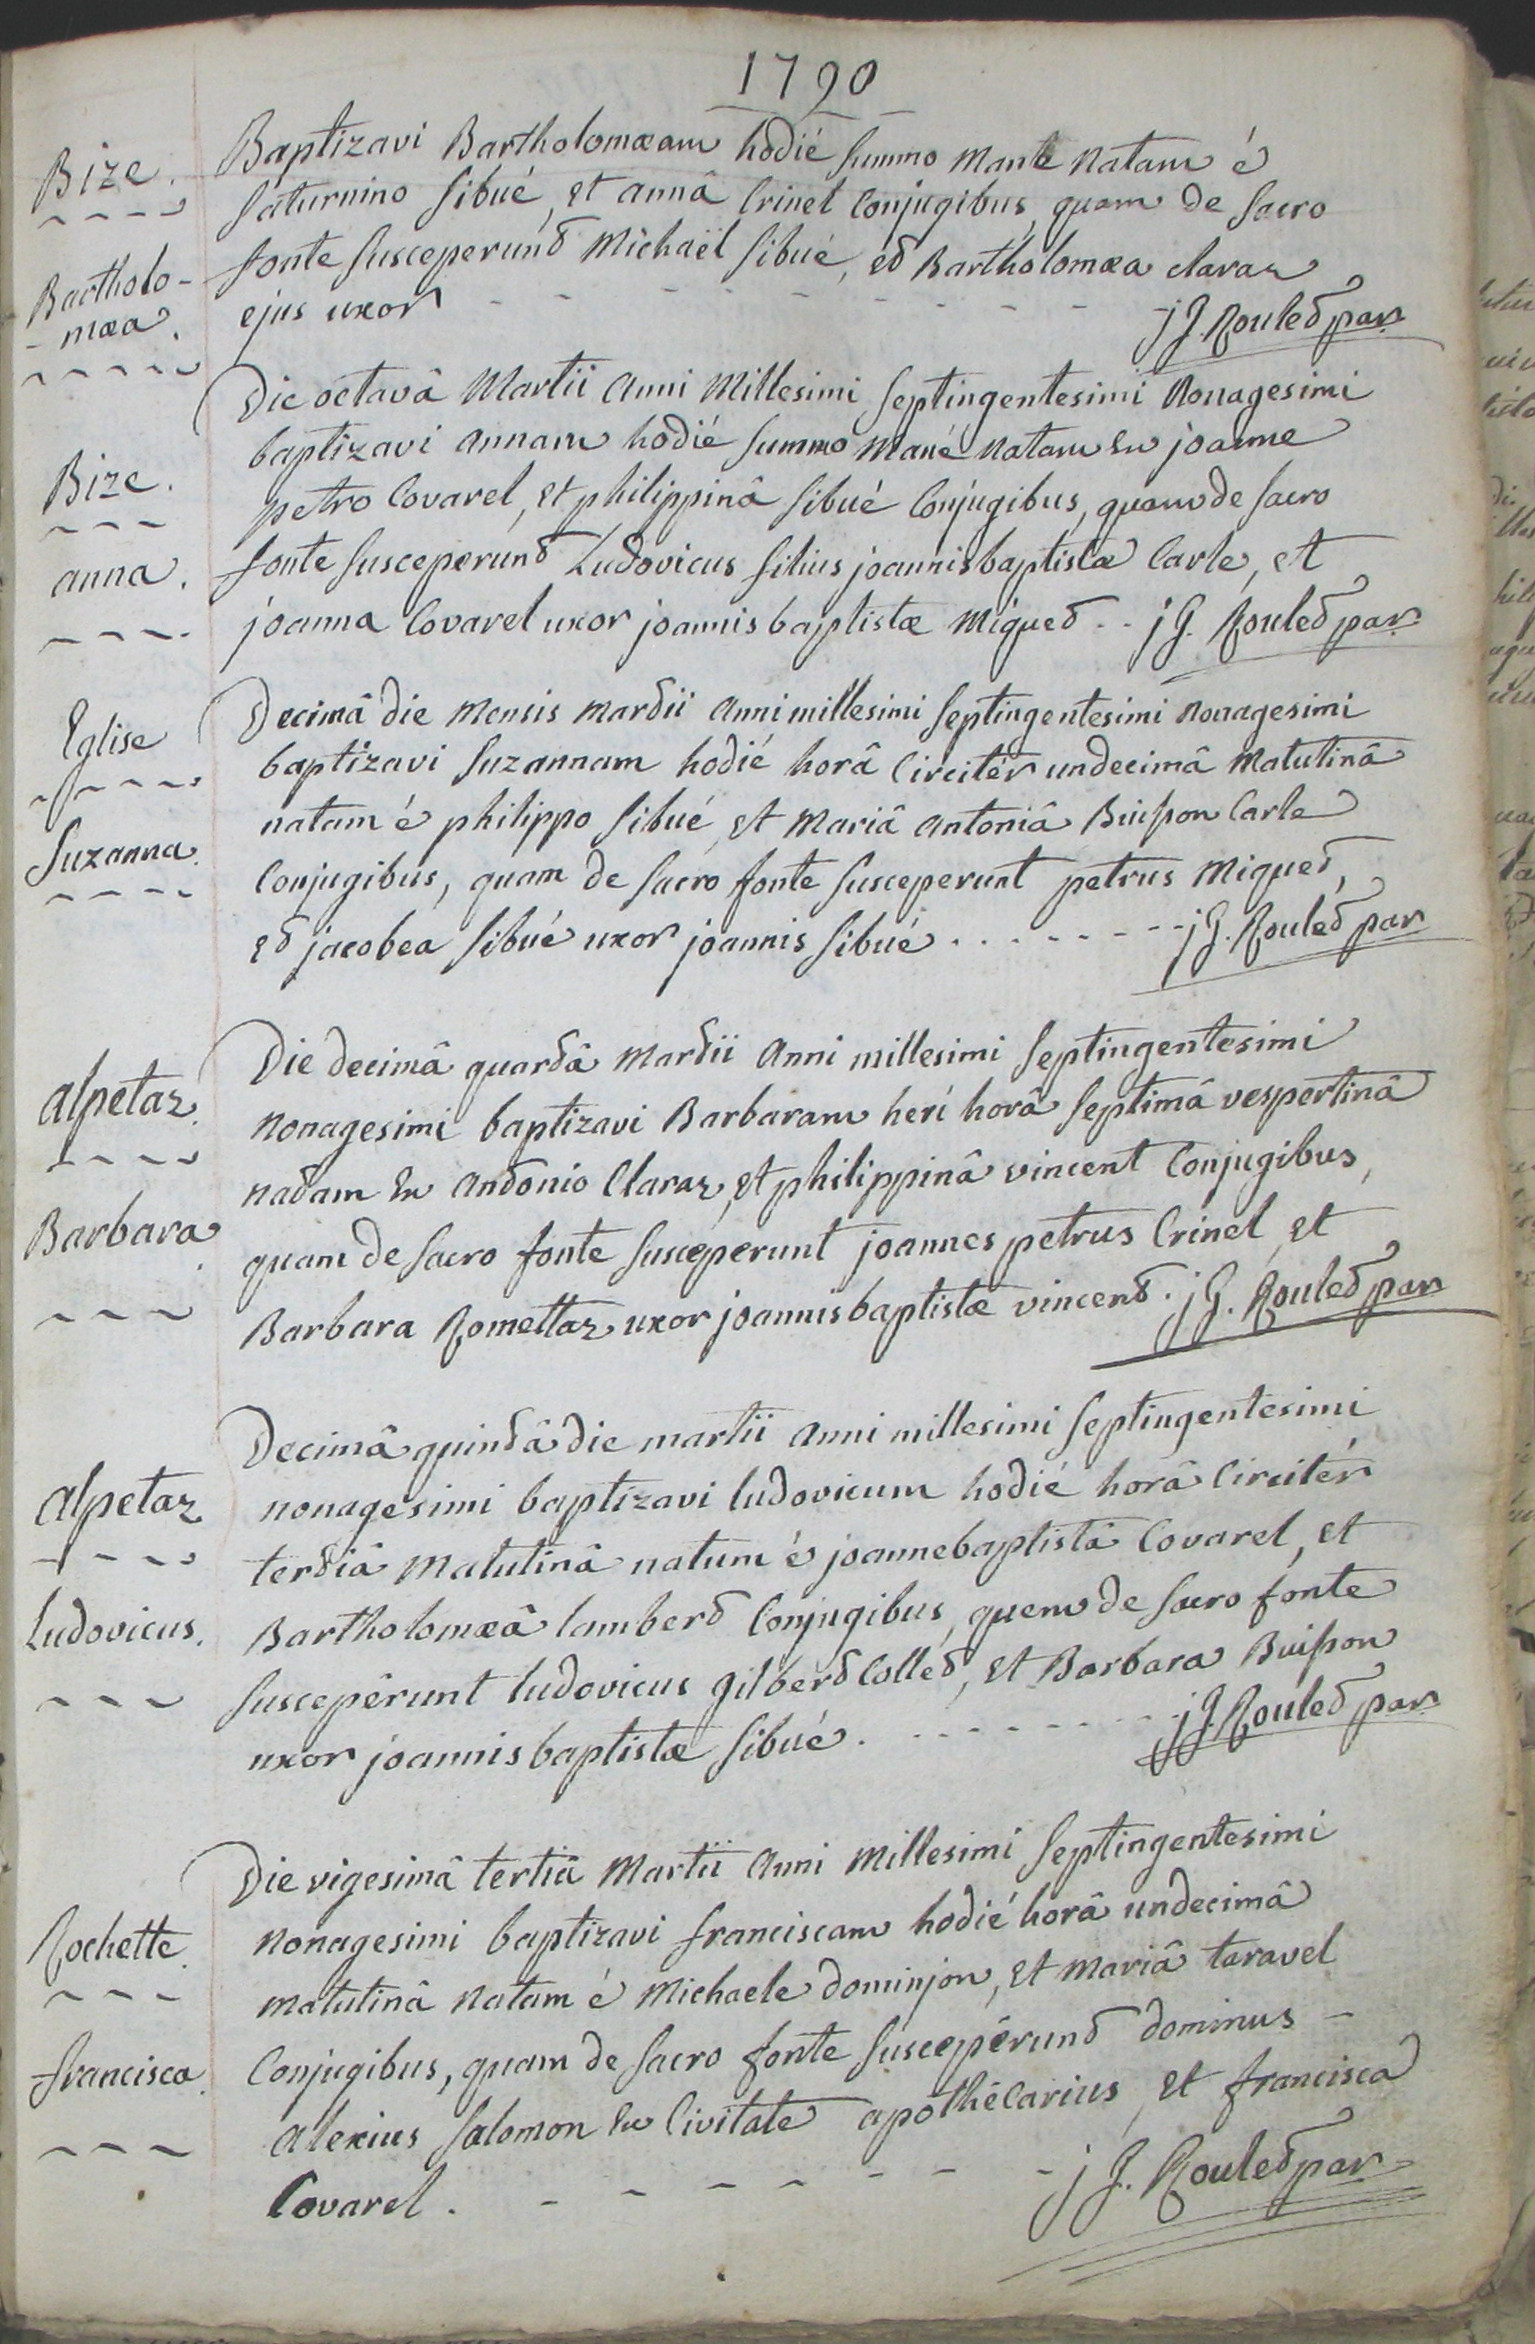 1790
Bize.
Bartholo-
-mæa.
Baptizavi Bartholomæam hodié summo mane natam é
saturnino sibué, et annâ Crinel Conjugibus, quam de sacro
fonte susceperunt Michaël sibué, et Bartholomæa claraz
ejus uxor - - - - - - - - - j G. Roulet par.
Bize.
anna.
Die octavâ Martii Anni Millesimi septingentesimi Nonagesimi
baptizavi annam hodié summo mané natam ex joanne
petro Covarel, et philippinâ sibué Conjugibus, quam de sacro
fonte susceperunt Ludovicus filius joannisbaptistæ Carle, et
joanna Covarel uxor joannis baptistæ Miguet - - j G. Roulet par.
Eglise
Suzanna.
Decimâ die Mensis martii Anni millesimi septingentesimi Nonagesimi
baptizavi suzannam hodié horâ Circitér undecimâ Matutinâ
natam é philippo sibué, et Mariâ antoniâ Buisson Carle
Conjugibus, quam de sacro fonte susceperunt petrus Miguet,
et jacobea sibué uxor joannis sibué . . . - - - - - j G. Roulet par.
alpetaz.
Barbara.
Die decimâ quartâ Martii Anni millesimi septingentesimi
Nonagesimi baptizavi Barbaram herí horâ septimâ vespertinâ
natam ex antonio Claraz, et philippinâ vincent Conjugibus,
quam de sacro fonte susceperunt joannes petrus Crinel, et
Barbara Romettaz uxor joannisbaptistæ vincent. j G. Roulet par.
alpetaz
Ludovicus.
Decimâ quintâ die martii Anni millesimi septingentesimi
nonagesimi baptizavi ludovicum hodié horâ Circitér
tertiâ Matutinâ natum é joannebaptistâ Covarel, et
Bartholomæâ lambert Conjugibus, quem de sacro fonte
suscepêrunt ludovicus gilbert Collet, et Barbara Buisson
uxor joannisbaptistæ sibué. - - - - - - - j G. Roulet par.
Rochette.
francisca.
Die vigesimâ tertiâ Martii Anni Millesimi septingentesimi
Nonagesimi baptizavi franciscam hodié horâ undecimâ
matutinâ natam é Michaele dominjon, et Mariâ taravel
Conjugibus, quam de sacro fonte suscepêrunt dominus -
Alexius salomon ex Civitate apothécarius, et francisca
Covarel. - - - - - - - j G. Roulet par.